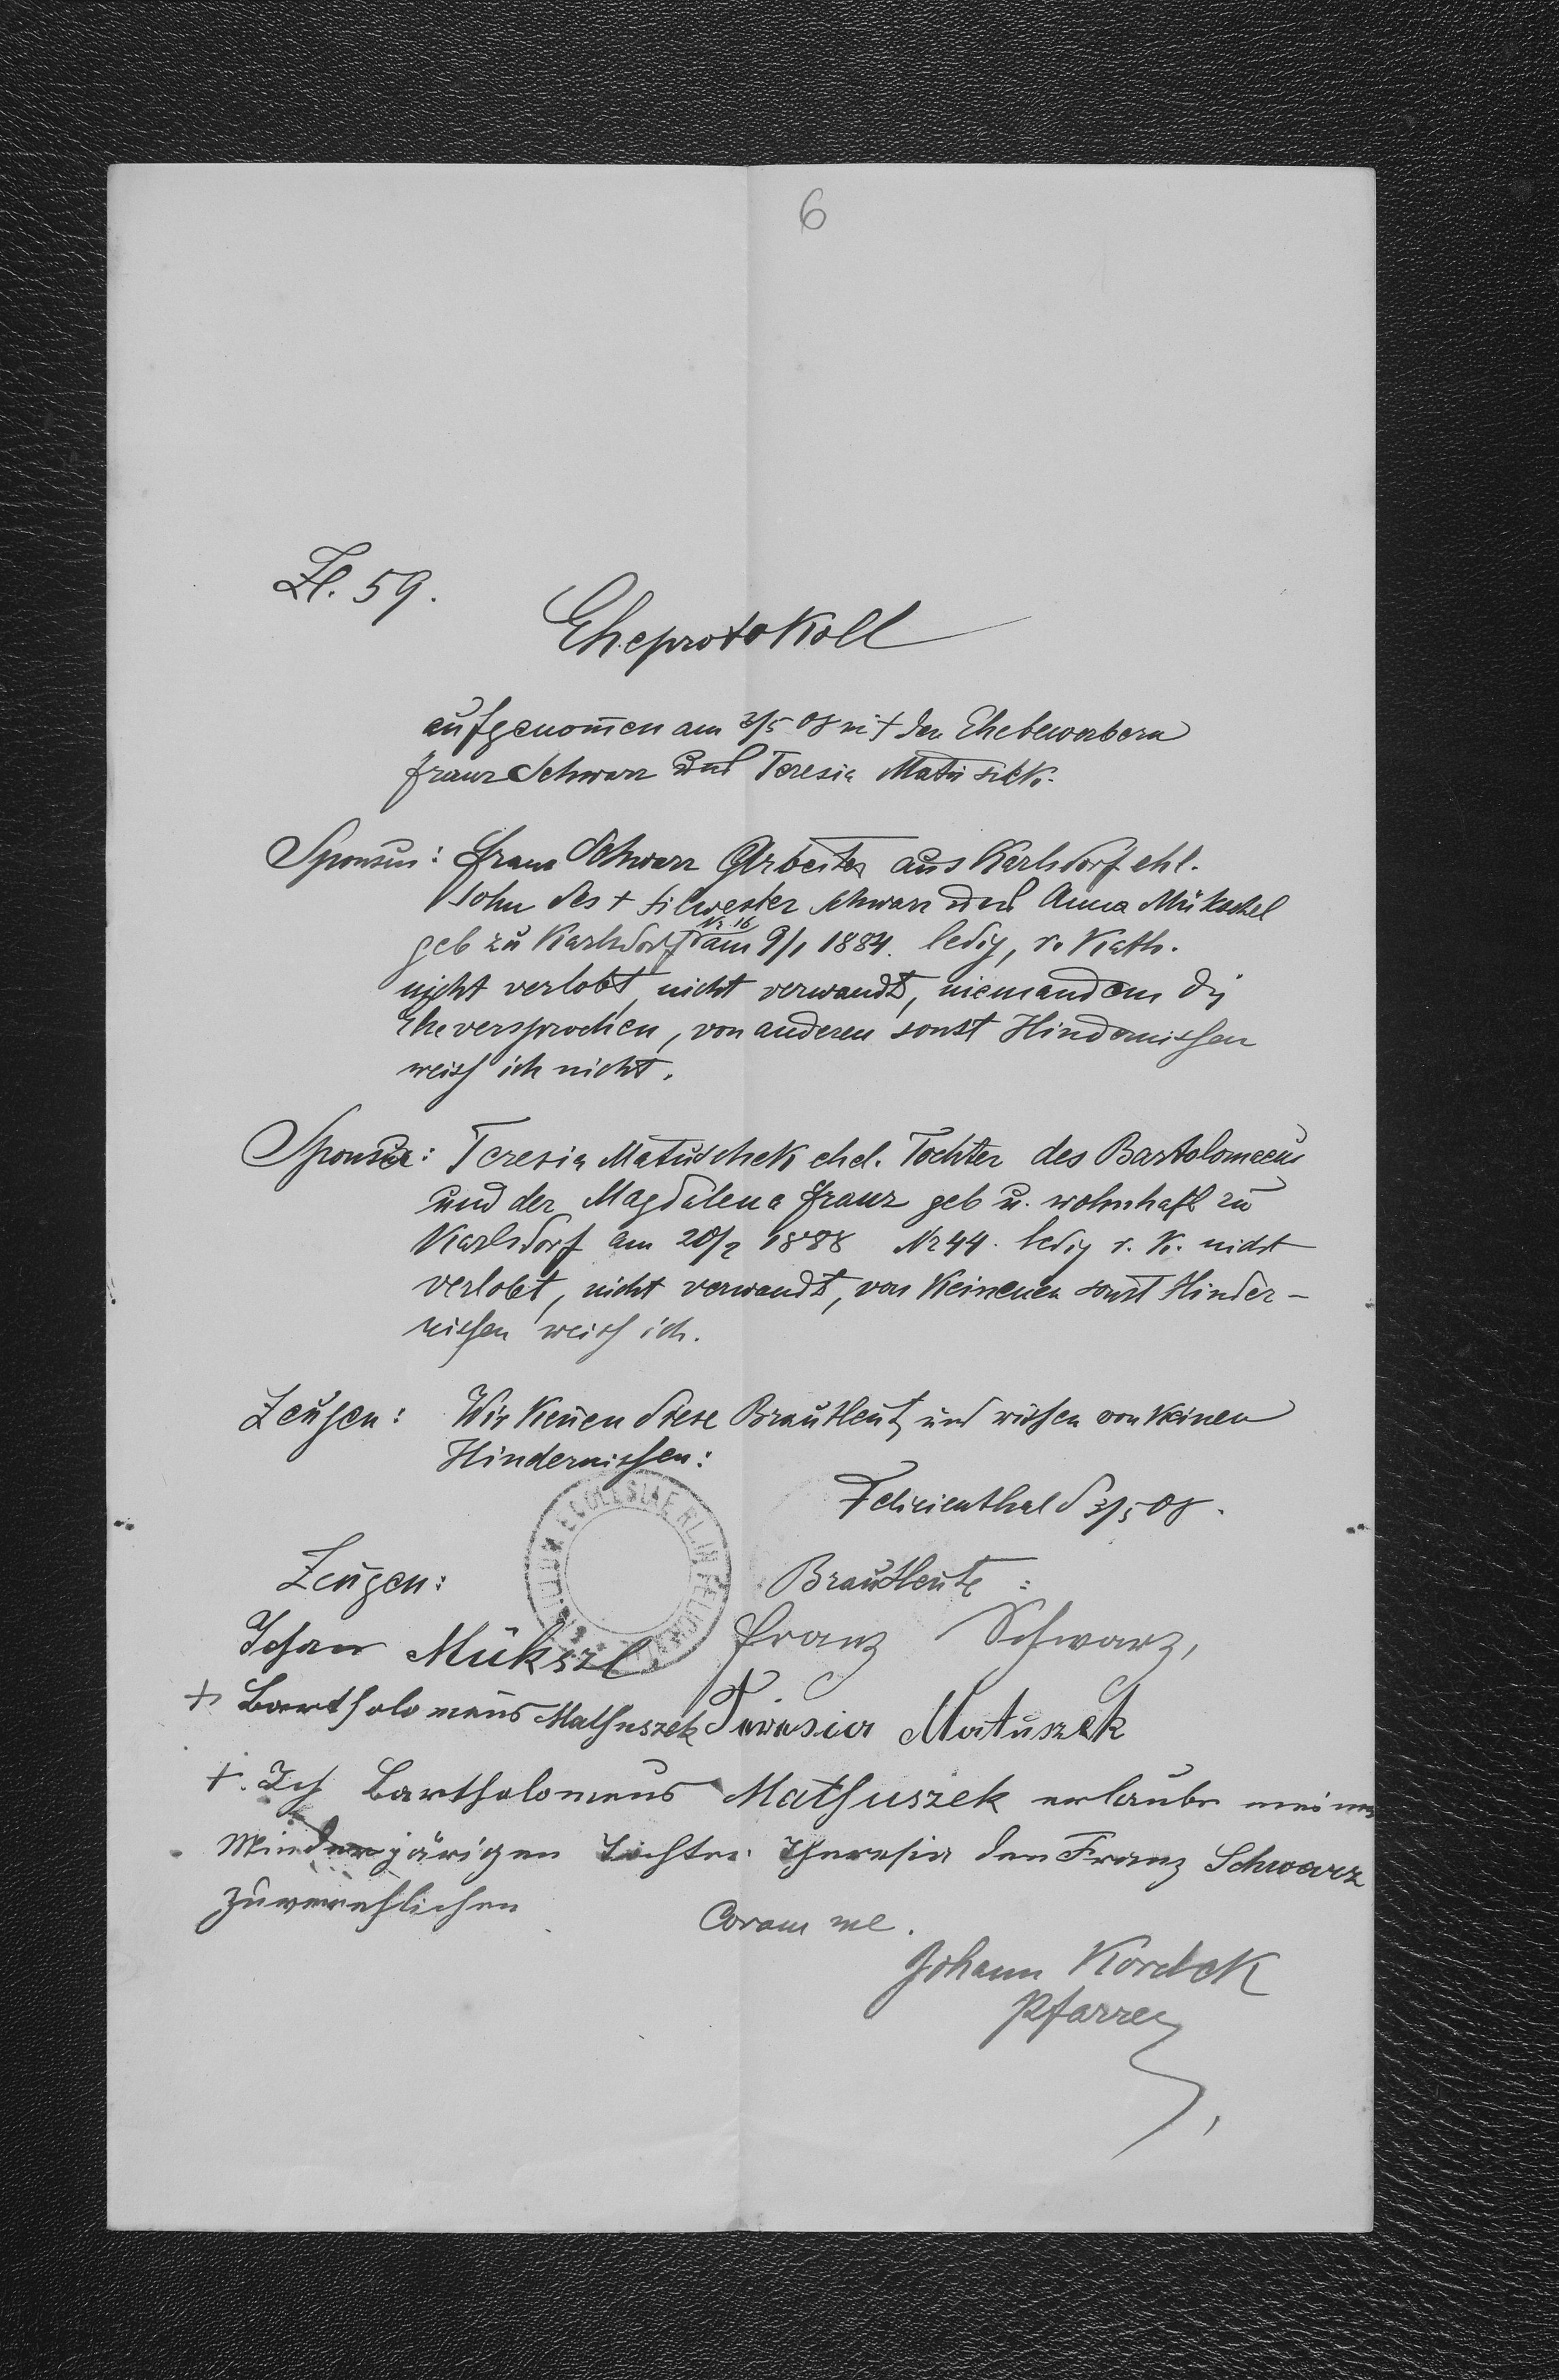 6
Zl. 59.
Eheprotokoll
aufgenom̄en am 3/5 08 mit den Ehebewerbern
Franz Schwarz und Teresia Matuschek.
Sponsus: Franz Schwarz Arbeiter aus Karlsdorf ehl.
Sohn des + Silwester Schwarz und Anna Mükschel
geb zu Karlsdorf Nr. 16 am 9/1 1884. ledig, r. Kath.
nicht verlobt, nicht verwandt, niemandem die
Ehe versprochen, von anderen sonst Hindernissen
weiss ich nicht.
Sponsa: Teresia Matuschek ehel. Tochter des Bartolomeeus
und der Magdalena Franz geb u. wohnhaft zu
Karlsdorf am 28/2 1888 Nr 44. ledig r. K. nicht
verlobt, nicht verwandt, von keinenen sonst Hinder-
nissen weiss ich.
Zeugen: Wir ken̄en diese Brautleute und wissen von keinen
Hindernissen:
Felizienthal d 3/5 08.
Zeugen:
Brautleute:
Johan Mükszl
Franz Schwarz,
+ Bartholomäus Mathuszek
Teresia Matuszek
+. Ich Bartholomeus Mathuszek erlaube meiner
Minderjärigen Tochter Theresia den Franz Schwarz
zuverehlichen
Coram me.
Johann Kordek
Pfarrer